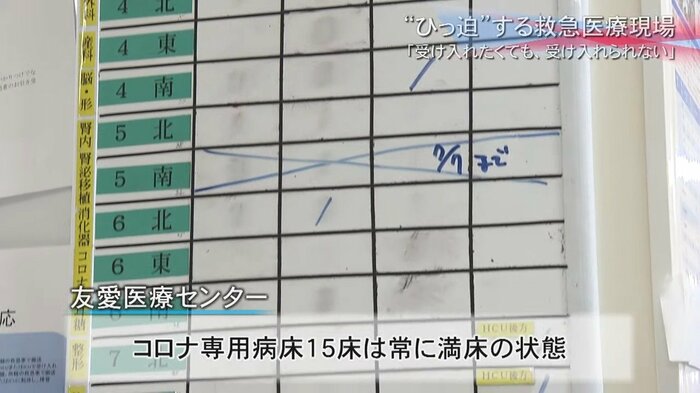 “ひっ迫”する救急医療現場
「受け入れたくても、受け入れられない」
外科
産科
脳・形
腎内
腎泌移植
消化器
コロナ
糖
整形
4 北
4 東
4 南
5 北
5 南
7/7 まで
6 北
6 東
7 北
HCU後方
HCU後方
応
友愛医療センター
コロナ専用病床15床は常に満床の状態